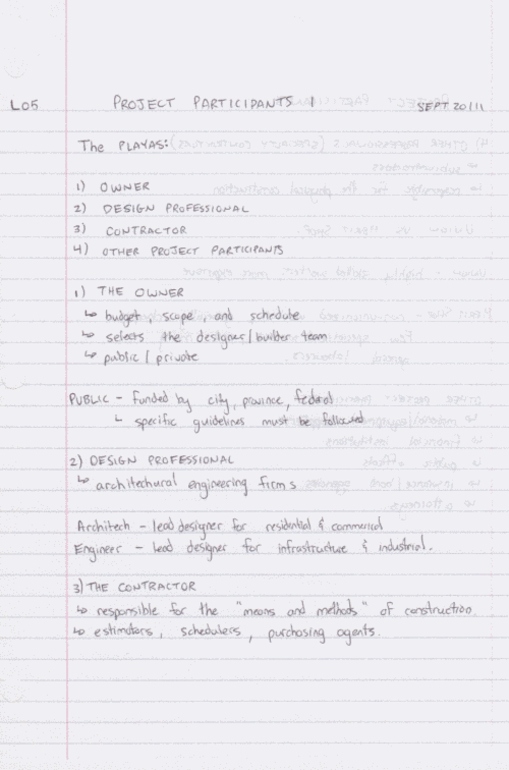 L05 PROJECT PARTICIPANTS 1 SEPT. 20/11
The PLAYAS:
1) OWNER
2) DESIGN PROFESSIONAL
3) CONTRACTOR
4) OTHER PROJECT PARTICIPANTS
1) THE OWNER
↳ budget, scope, and schedule
↳ selects the designer/builder team
↳ public / private
PUBLIC - funded by city, province, federal
↳ specific guidelines must be followed
2) DESIGN PROFESSIONAL
↳ architechural engineering firms
Architech - lead designer for residential & commerical
Engineer - lead designer for infrastructure & industrial.
3) THE CONTRACTOR
↳ responsible for the "means and methods" of construction.
↳ estimators, schedulers, purchasing agents.